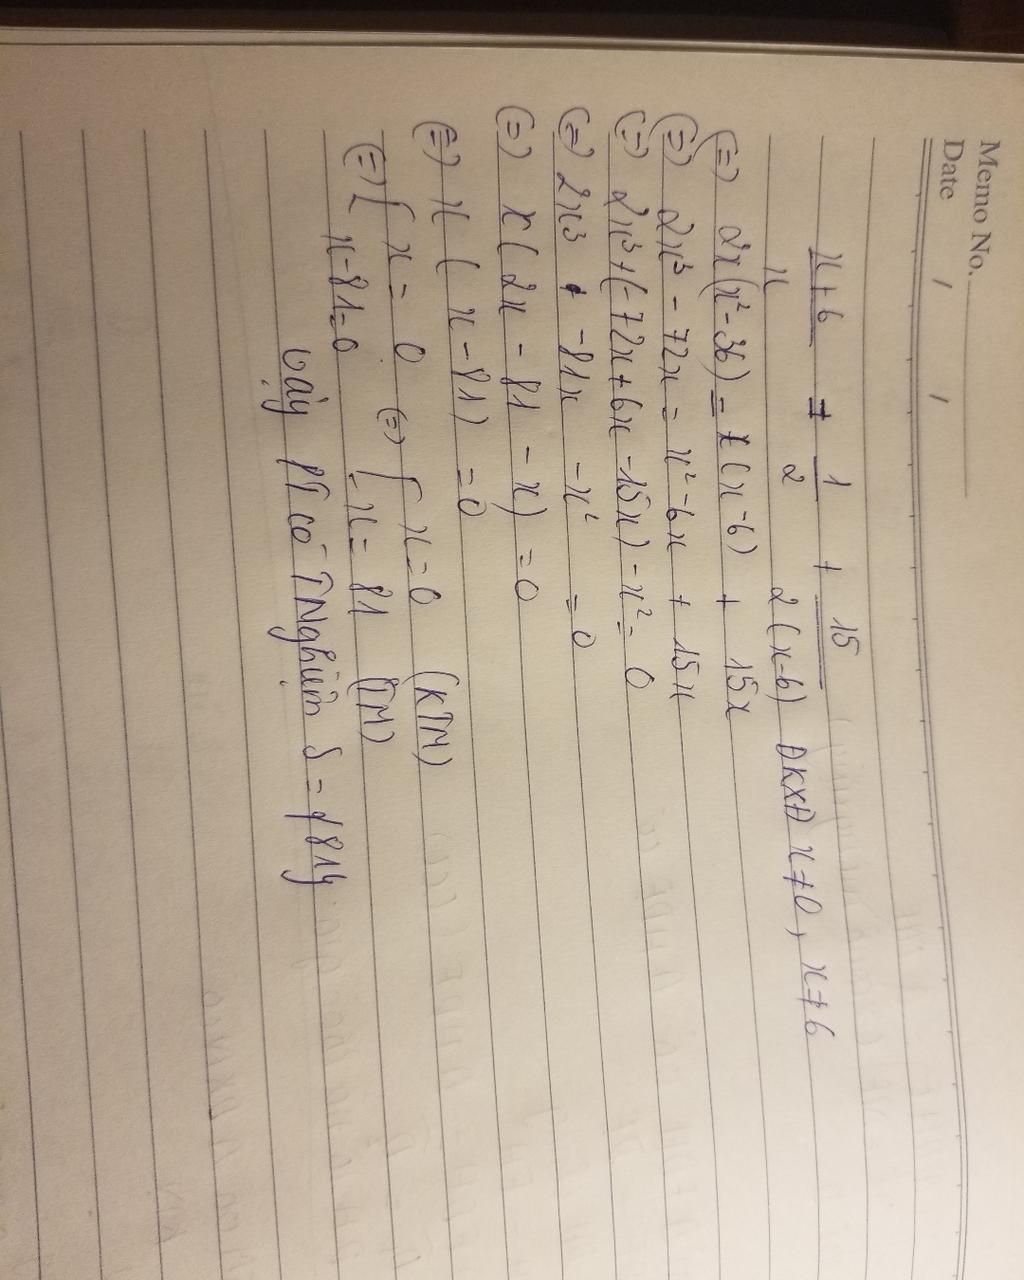 Memo No.
Date / /
x+6/x = 1/2 + 15/2(x-6) ĐKXĐ x≠0, x≠6
(=) 2x(x²-36) = x(x-6) + 15x
(=) 2x³ - 72x = x² - 6x + 15x
(=) 2x³ + (-72x + 6x - 15x) - x² = 0
(=) 2x³ + -81x - x² = 0
(=) x(2x - 81 - x) = 0
(=) x(x - 81) = 0
(=) [ x = 0 (=) [ x = 0 (KTM)
x - 81 = 0 x = 81 (TM)
Vậy PT có TNghiệm S = {81}